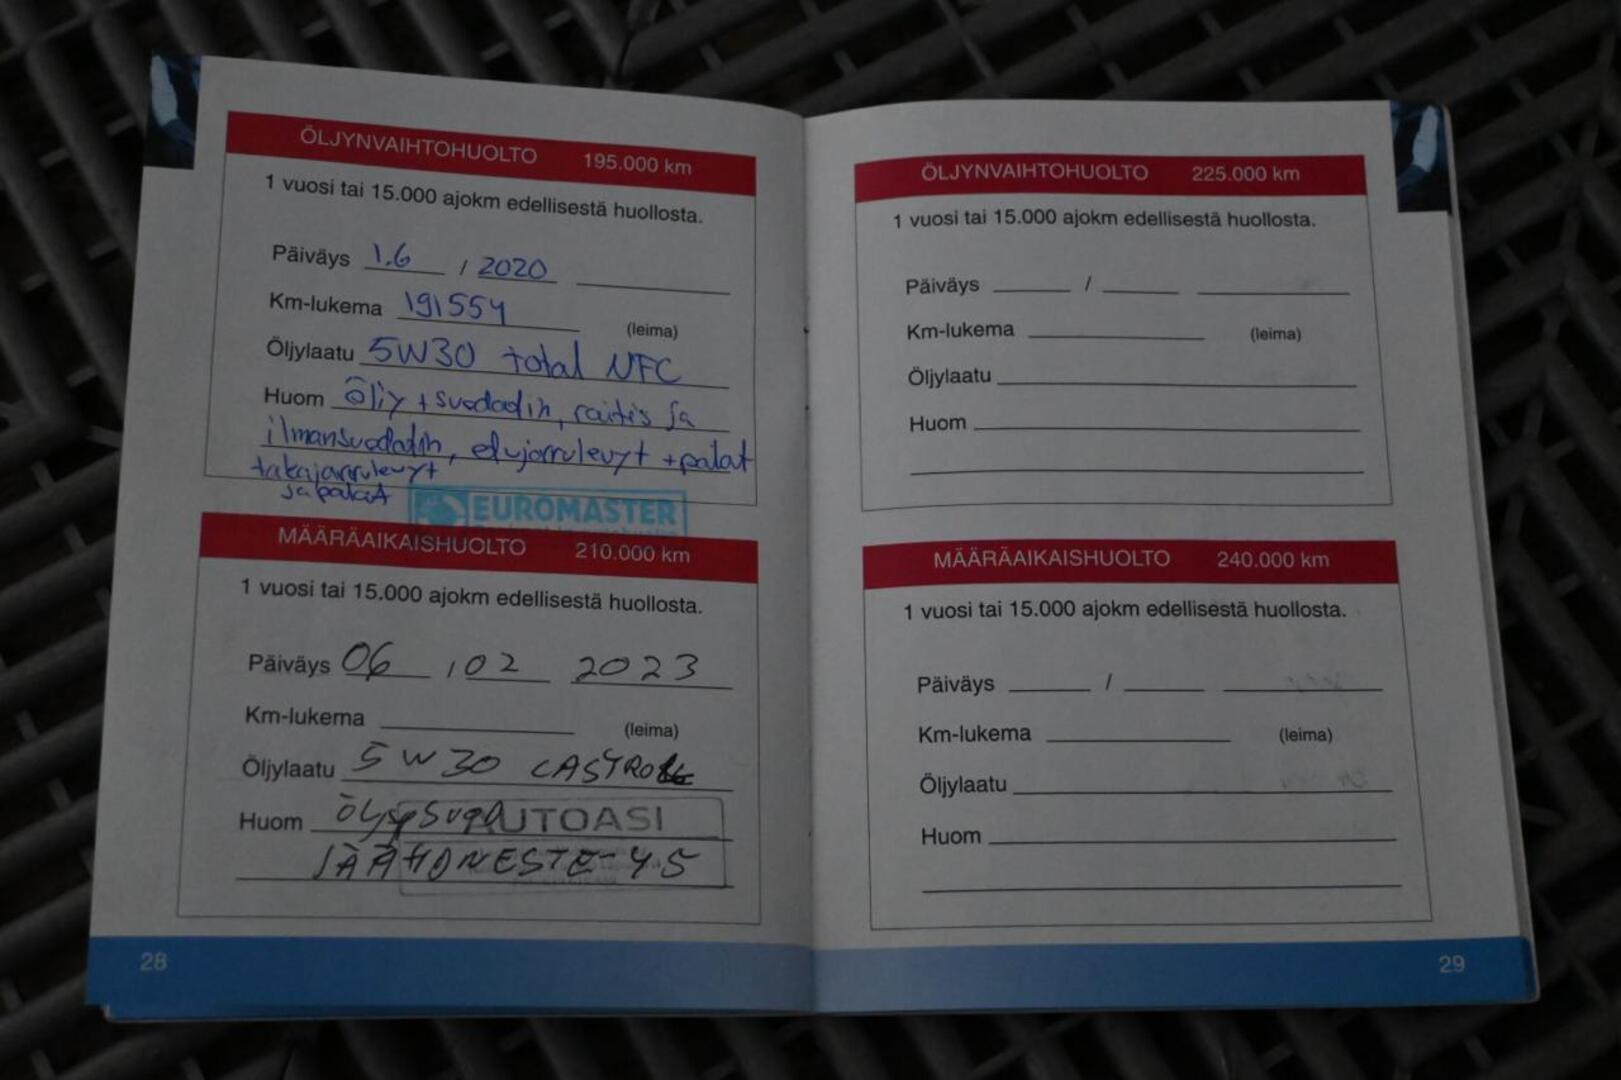 ÖLJYNVAIHTOHUOLTO 195.000 km
1 vuosi tai 15.000 ajokm edellisestä huollosta.
Päiväys 1.6 / 2020
Km-lukema 191554
(leima)
Öljylaatu 5W30 total NFC
Huom öljy + suodadin, raitis ja
ilmansuodatin, etujarrulevyt + palat
takajarrulevyt
ja palat
EUROMASTER
MÄÄRÄAIKAISHUOLTO 210.000 km
1 vuosi tai 15.000 ajokm edellisestä huollosta.
Päiväys 06 / 02 2023
Km-lukema
(leima)
Öljylaatu 5W30 CASTROL
Huom AUTOASI
JÄÄHDNESTE -45
28
ÖLJYNVAIHTOHUOLTO 225.000 km
1 vuosi tai 15.000 ajokm edellisestä huollosta.
Päiväys /
Km-lukema
(leima)
Öljylaatu
Huom
MÄÄRÄAIKAISHUOLTO 240.000 km
1 vuosi tai 15.000 ajokm edellisestä huollosta.
Päiväys /
Km-lukema
(leima)
Öljylaatu
Huom
29